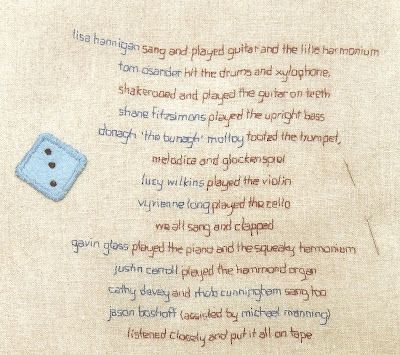 lisa hannigan sang and played guitar and the lille harmonium
tom osander hit the drums and xylophone,
shakerooed and played the guitar on teeth
shane fitzsimons played the upright bass
donagh 'the bunagh' molloy tooted the trumpet,
melodica and glockenspiel
lucy wilkins played the violin
vyvienne long played the cello
we all sang and clapped
gavin glass played the piano and the squeaky harmonium
justin carroll played the hammond organ
cathy davey and rhob cunningham sang too
jason boshoff (assisted by michael manning)
listened closely and put it all on tape